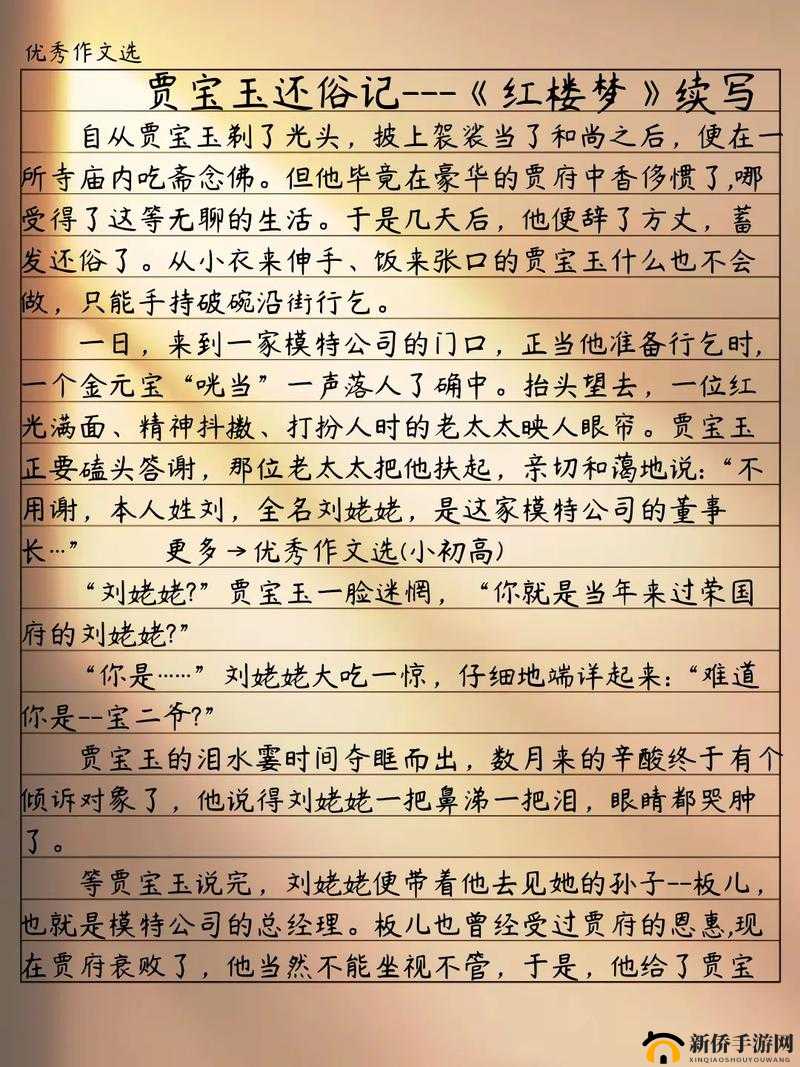 优秀作文选
贾宝玉还俗记---《红楼梦》续写
自从贾宝玉剃了光头，披上袈裟当了和尚之后，便在一
所寺庙内吃斋念佛。但他毕竟在豪华的贾府中香侈惯了,哪
受得了这等无聊的生活。于是几天后，他便辞了方丈，蓄
发还俗了。从小衣来伸手、饭来张口的贾宝玉什么也不会
做，只能手持破碗沿街行乞。
一日，来到一家模特公司的门口，正当他准备行乞时,
一个金元宝“咣当”一声落人了确中。抬头望去，一位红
光满面、精神抖擞、打扮人时的老太太映人眼帘。贾宝玉
正要磕头答谢，那位老太太把他扶起，亲切和蔼地说:“不
用谢，本人姓刘，全名刘姥姥，是这家模特公司的董事
长…” 更多→优秀作文选(小初高)
“刘姥姥?”贾宝玉一脸迷惘，“你就是当年来过荣国
府的刘姥姥?”
“你是……”刘姥姥大吃一惊，仔细地端详起来:“难道
你是--宝二爷?”
贾宝玉的泪水霎时间夺眶而出，数月来的辛酸终于有个
倾诉对象了，他说得刘姥姥一把鼻涕一把泪，眼睛都哭肿
了。
等贾宝玉说完，刘姥姥便带着他去见她的孙子--板儿，
也就是模特公司的总经理。板儿也曾经受过贾府的恩惠,现
在贾府衰败了，他当然不能坐视不管，于是，他给了贾宝
新侨手游网
XINQIAOSHOUYOUWANG